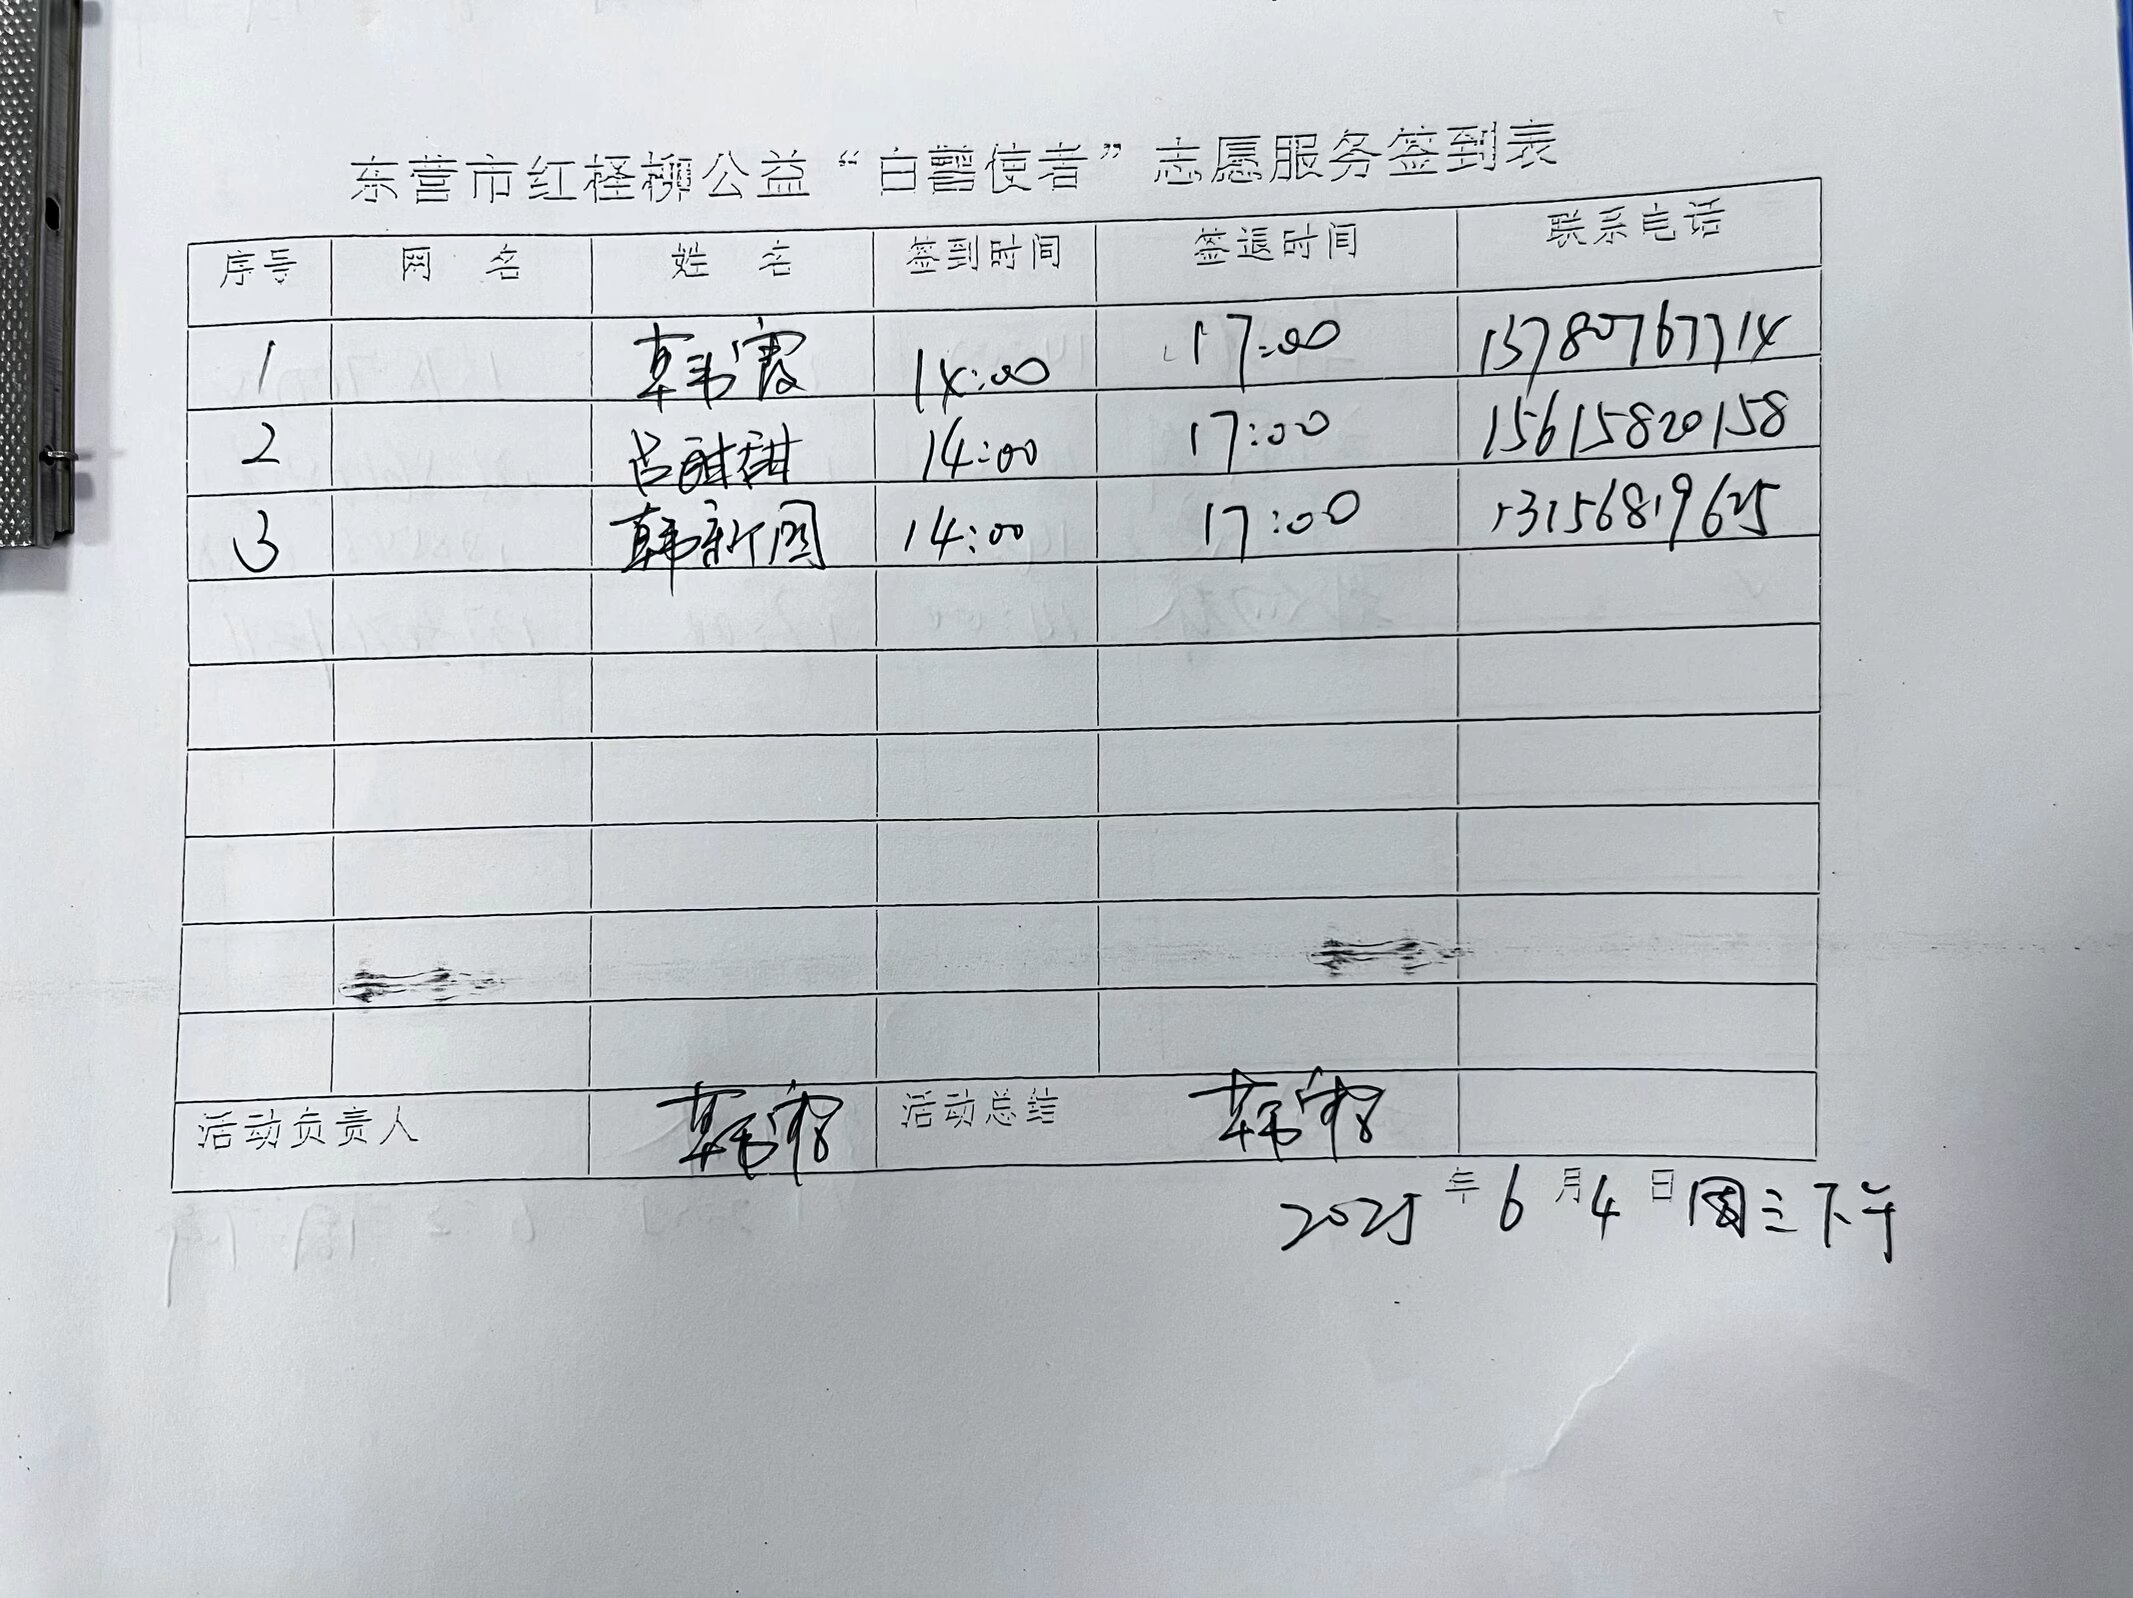 东营市红柽柳公益“白鹥使者”志愿服务签到表
序号 网 名 姓 名 签到时间 签退时间 联系电话
1 韩霞 14:00 17:00 13780767714
2 吕甜甜 14:00 17:00 15615820158
3 韩新图 14:00 17:00 13156819625
活动负责人 韩霞 活动总结 韩霞
2025年6月4日周三下午